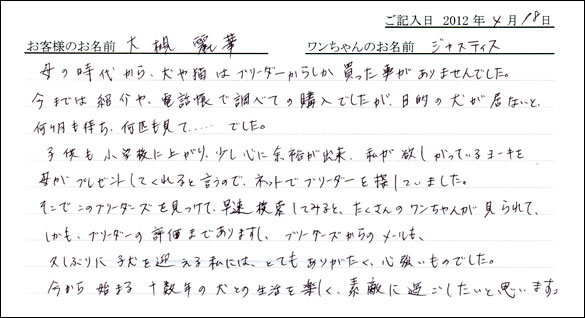 ご記入日 2012年4月18日
お客様のお名前 大槻 麗華 ワンちゃんのお名前 ジャスティス
母の時代から、犬や猫はブリーダーからしか買った事がありませんでした。
今までは紹介や、電話帳で調べての購入でしたが、目的の犬が居ないと、
何ヶ月も待ち、何匹も見て……でした。
子供も小学校に上がり、少し心に余裕が出来、私が欲しがっているヨーキを
母がプレゼントしてくれると言うので、ネットでブリーダーを探していました。
そこでこのブリーダーズを見つけて、早速検索してみると、たくさんのワンちゃんが見られて、
しかも、ブリーダーの評価まてありますし、ブリーダーズからのメールも、
久しぶりに子犬を迎える私には、とてもありがたく、心強いものでした。
今から始まる十数年の犬との生活を楽しく、素敵に過ごしたいと思います。